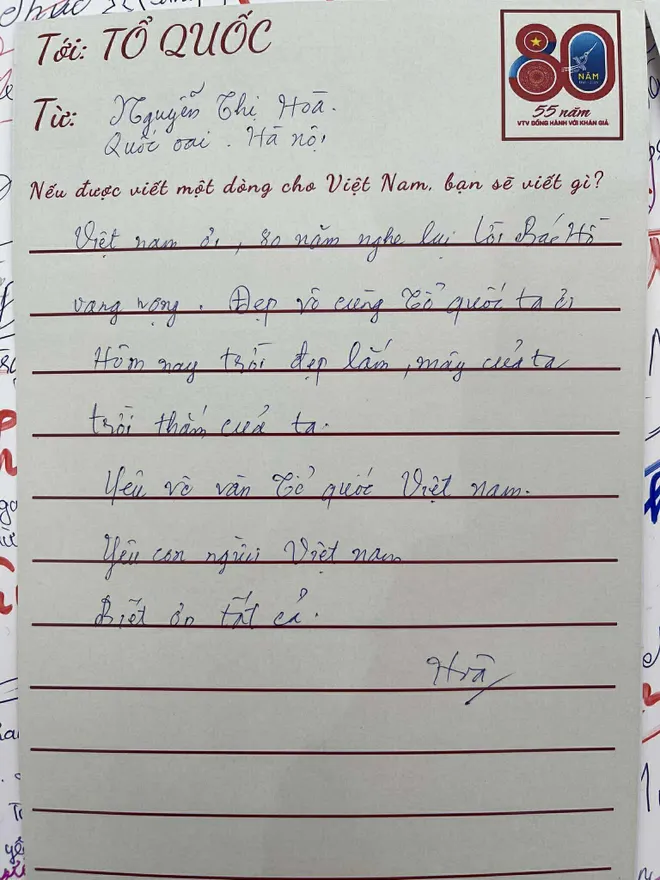 Tới: TỔ QUỐC
80
NĂM
55 năm
VTV ĐỒNG HÀNH VỚI KHÁN GIẢ
Từ: Nguyễn Thị Hoà.
Quốc oai. Hà nội
Nếu được viết một dòng cho Việt Nam, bạn sẽ viết gì?
Việt nam ơi, 80 năm nghe lại lời Bác Hồ
vang vọng. Đẹp vô cùng Tổ quốc ta ơi
Hôm nay trời đẹp lắm, mây của ta
trời thắm của ta.
Yêu vô vàn Tổ quốc Việt nam.
Yêu con người Việt nam
Biết ơn tất cả.
Hoà